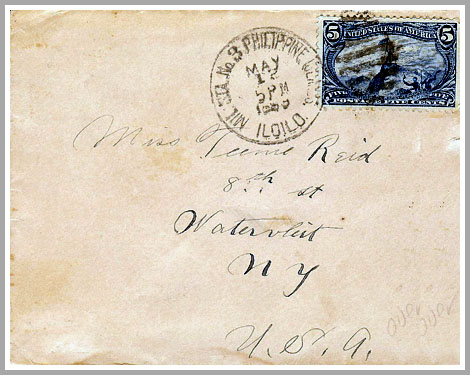 MIL. STA. No. 3 PHILIPPINE ISLANDS.
MAY
5 PM
ILOILO.
5 UNITED STATES OF AMERICA 5
POSTAGE FIVE CENTS
Miss Reid
8th st
Watervliet
N Y
U. S. A.
over
over